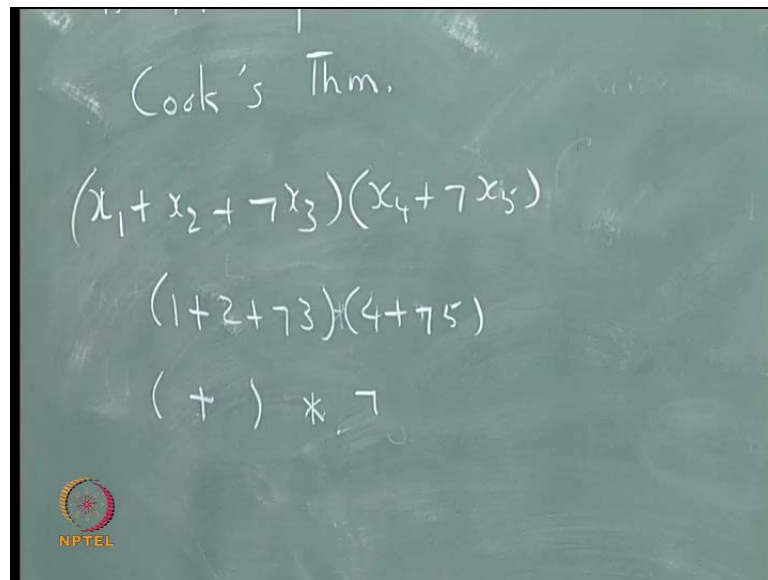 Cook's Thm.
(x₁ + x₂ + ¬x₃)(x₄ + ¬x₅)
(1 + 2 + ¬3)*(4 + ¬5)
( + ) * ¬
NPTEL